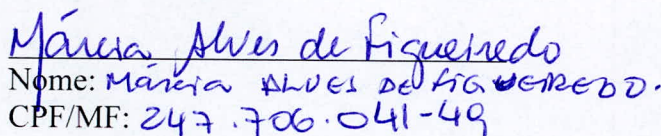 Márcia Alves de Figueiredo
Nome: MÁRCIA ALVES DE FIGUEIREDO.
CPF/MF: 247.706.041-49